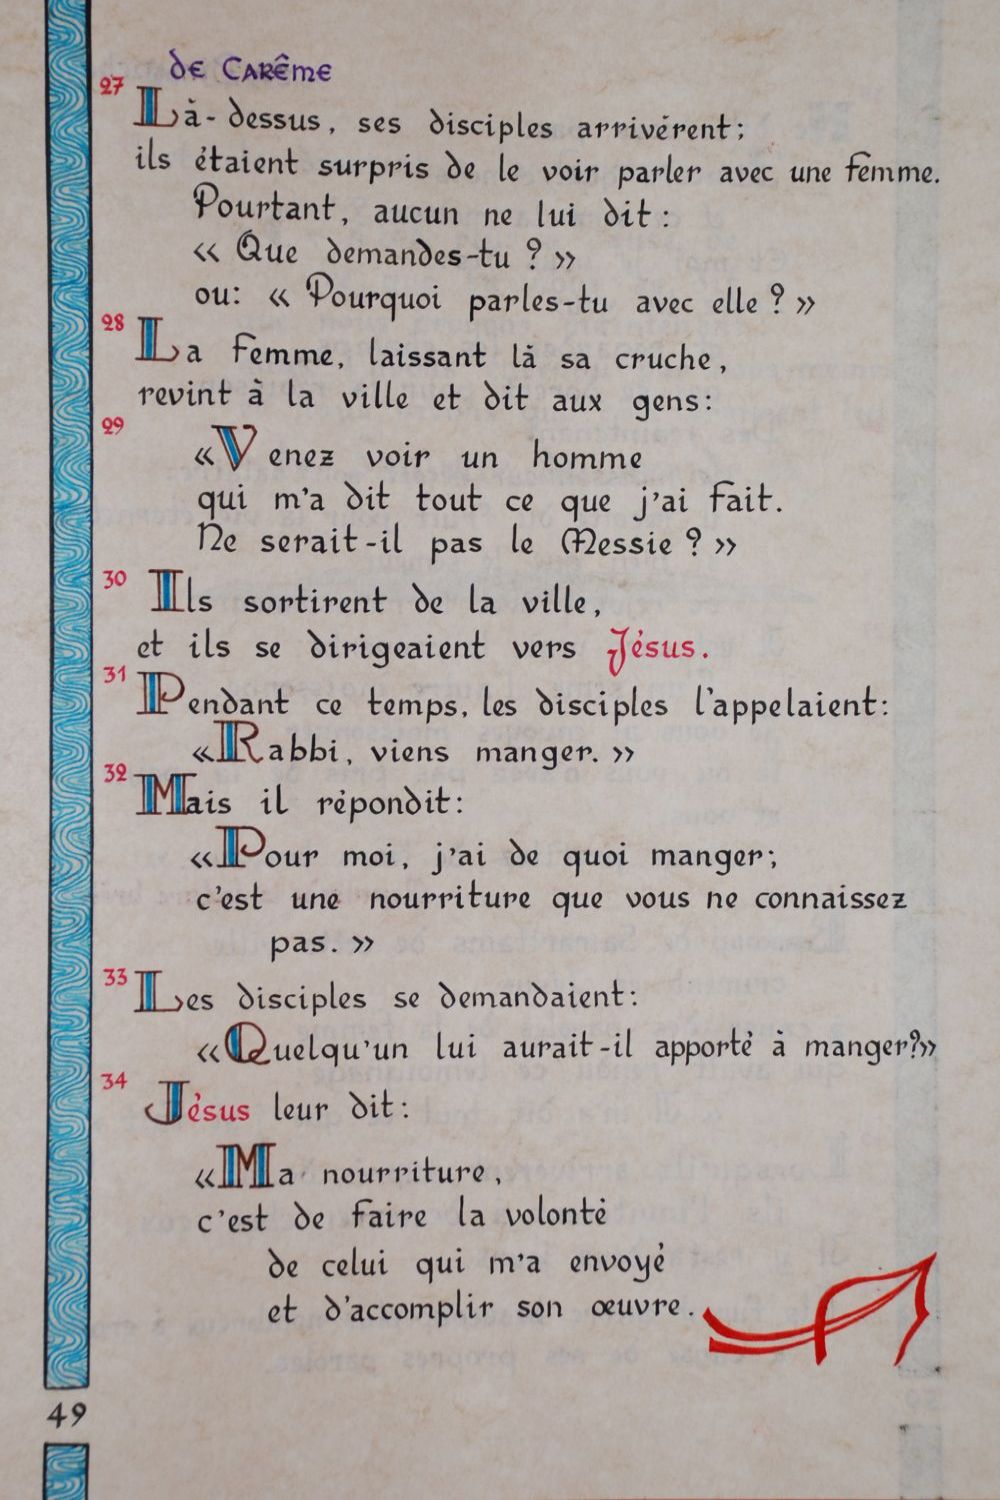 de Carême
27
Là-dessus, ses disciples arrivèrent;
ils étaient surpris de le voir parler avec une femme.
Pourtant, aucun ne lui dit:
« Que demandes-tu ? »
ou: « Pourquoi parles-tu avec elle ? »
28
La femme, laissant là sa cruche,
revint à la ville et dit aux gens:
29
«Venez voir un homme
qui m'a dit tout ce que j'ai fait.
Ne serait-il pas le Messie ? »
30
Ils sortirent de la ville,
et ils se dirigeaient vers Jésus.
31
Pendant ce temps, les disciples l'appelaient:
«Rabbi, viens manger. »
32
Mais il répondit:
«Pour moi, j'ai de quoi manger;
c'est une nourriture que vous ne connaissez
pas. »
33
Les disciples se demandaient:
«Quelqu'un lui aurait-il apporté à manger?»
34
Jésus leur dit:
«Ma nourriture,
c'est de faire la volonté
de celui qui m'a envoyé
et d'accomplir son œuvre.
49